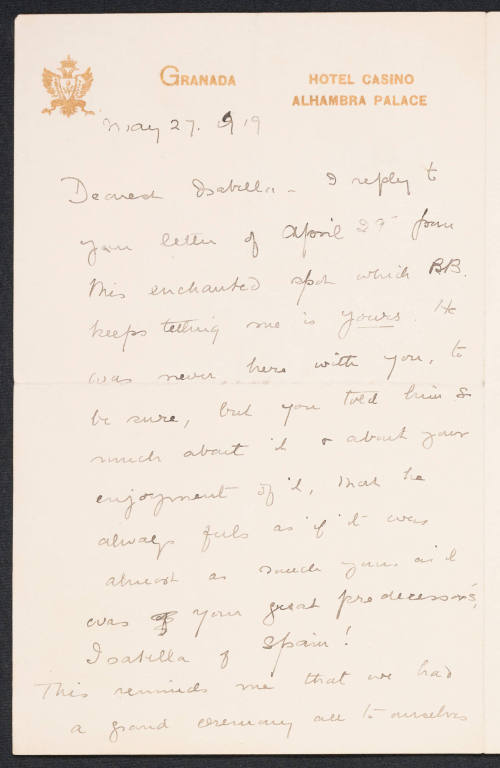 GRANADA
HOTEL CASINO
ALHAMBRA PALACE
May 27. 1919
Dearest Isabella - I reply to
your letter of April 29 from
this enchanted spot which BB.
keeps telling me is yours. He
was never here with you, to
be sure, but you told him so
much about it & about your
enjoyment of it, that he
always feels as if it was
almost as much yours as it
was your great predecessor's,
Isabella of Spain!
This reminds me that we had
a grand ceremony all to ourselves